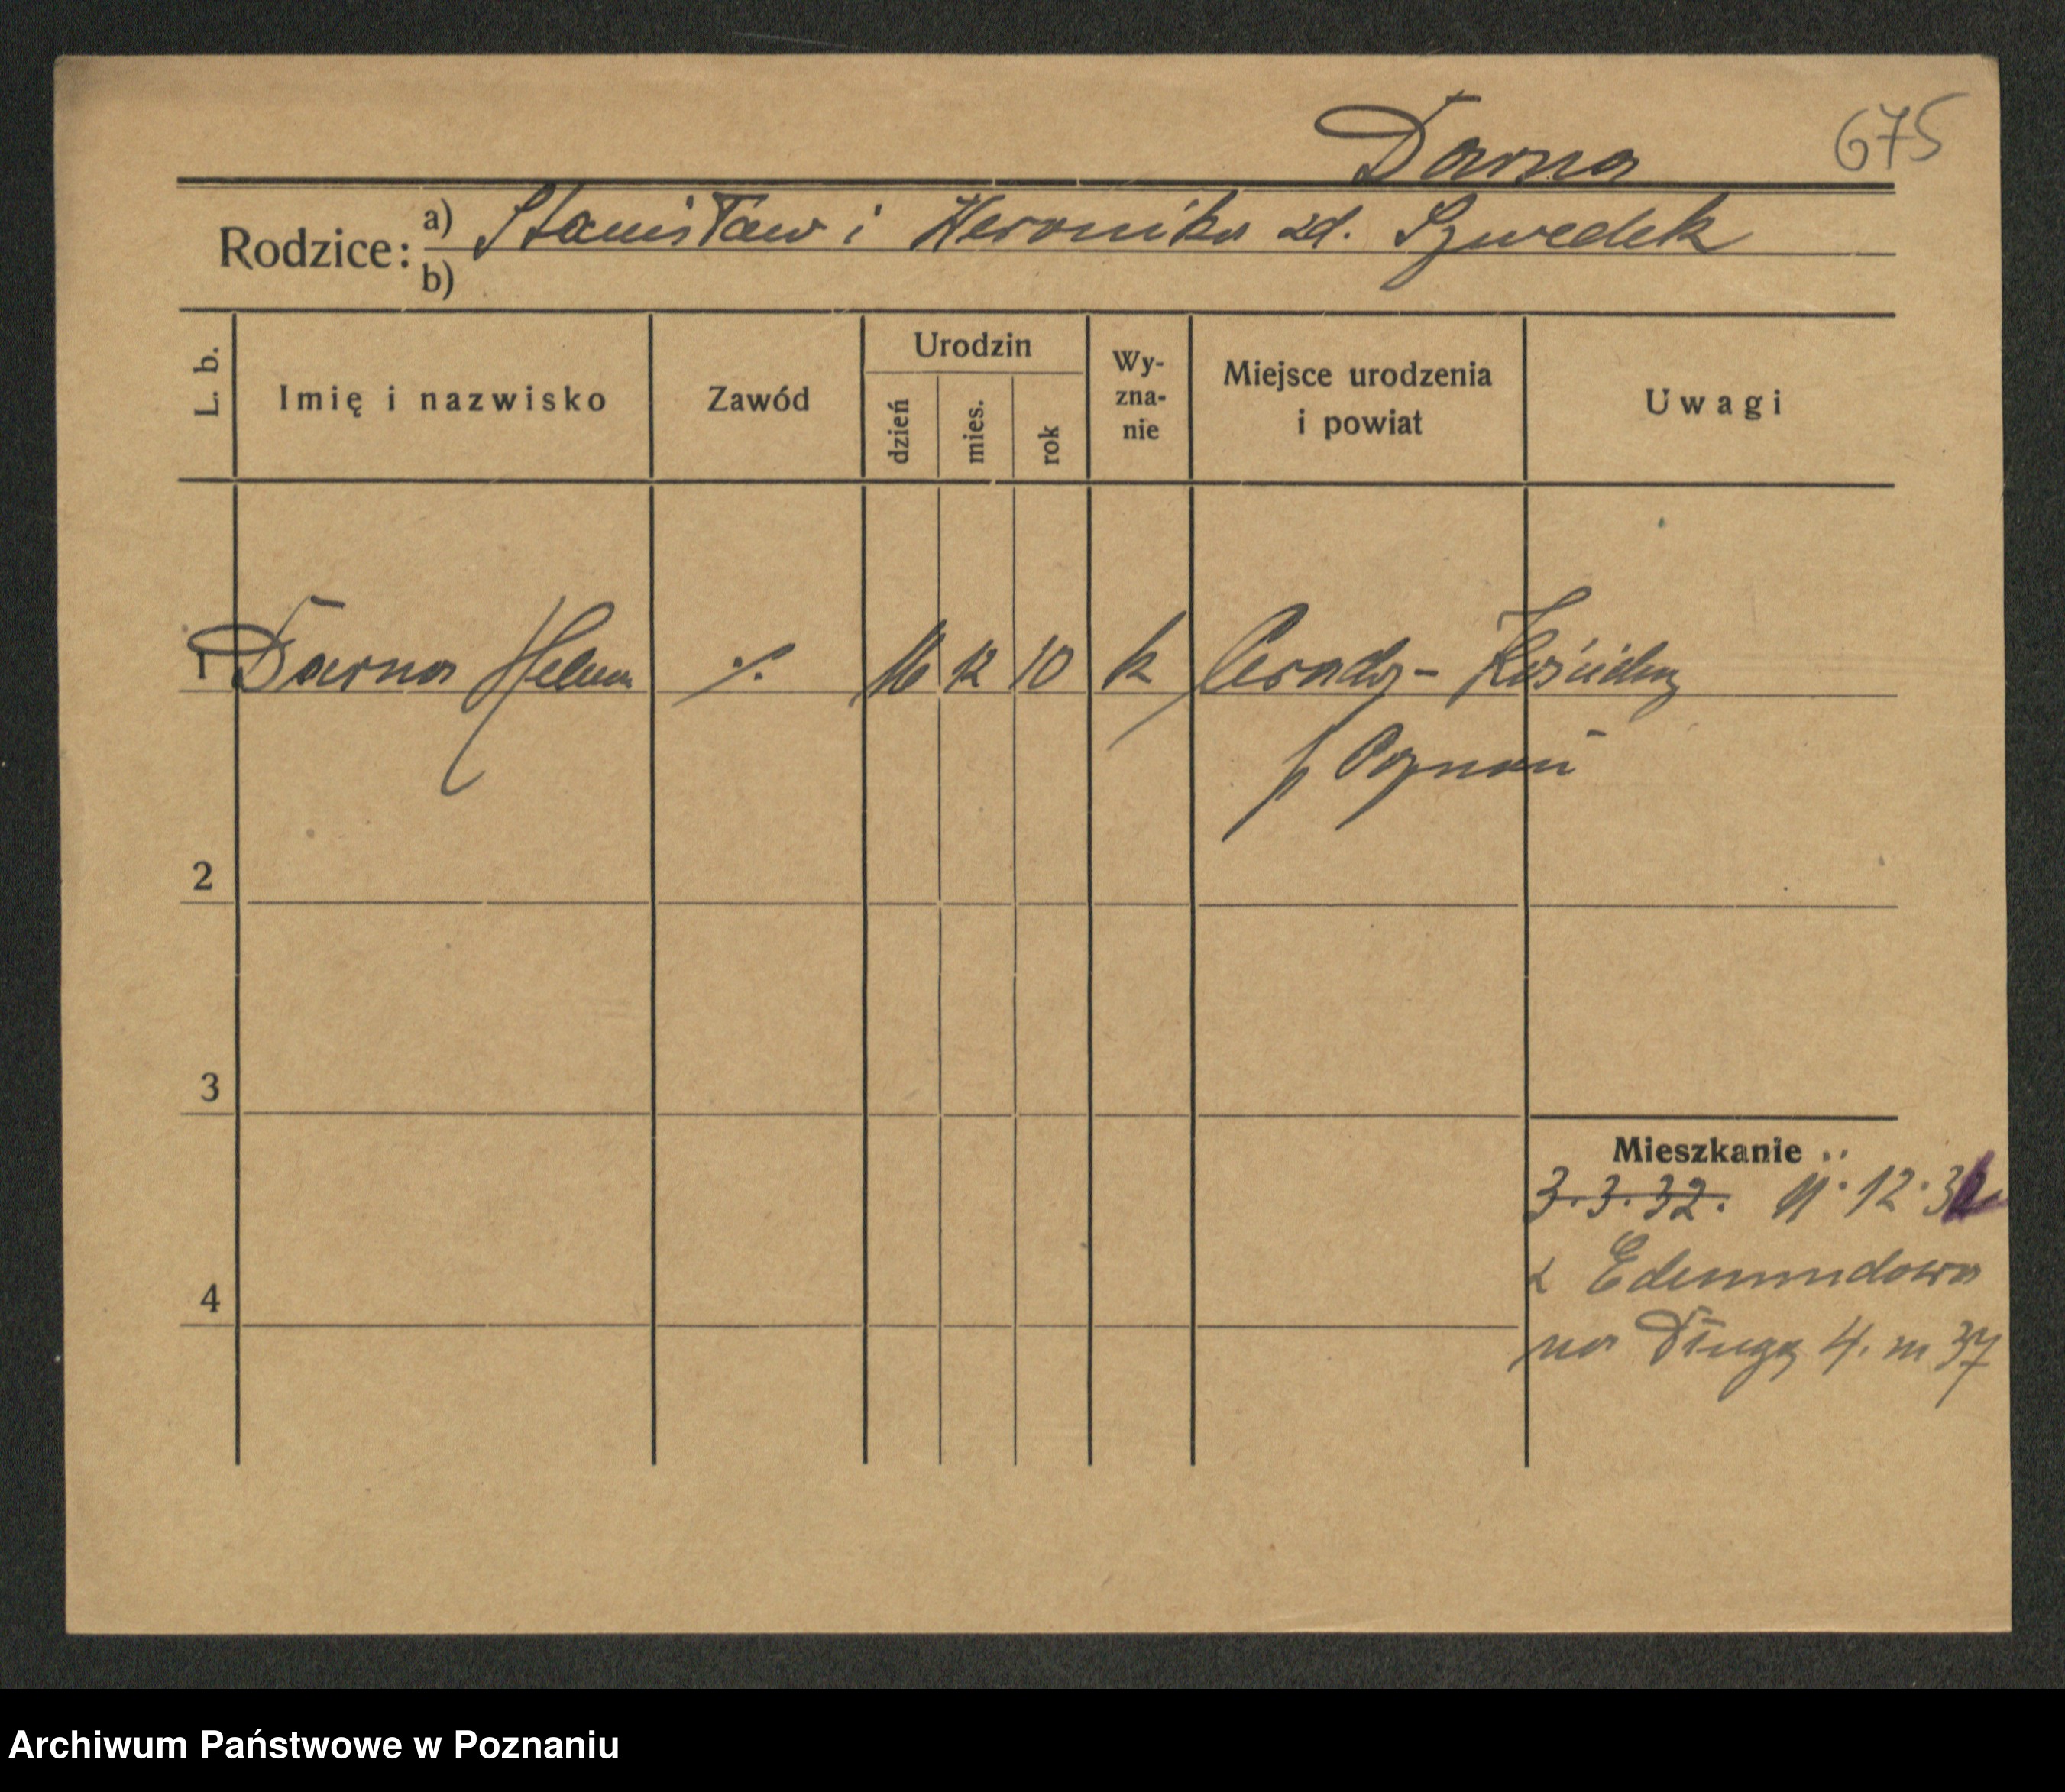 Darna 675
Rodzice: a) Stanisław i Weronika zd. Szwedek
b)
L. b. Imię i nazwisko Zawód Urodzin dzień mies. rok Wy-zna-nie Miejsce urodzenia i powiat Uwagi
1 Darna Helena ./. 16 12 10 k Cerady-Kościelny
p Poznań
2
3
Mieszkanie
3.3.32. 11.12.32
z Edmundowa
4
na Długą 4. m 37
Archiwum Państwowe w Poznaniu